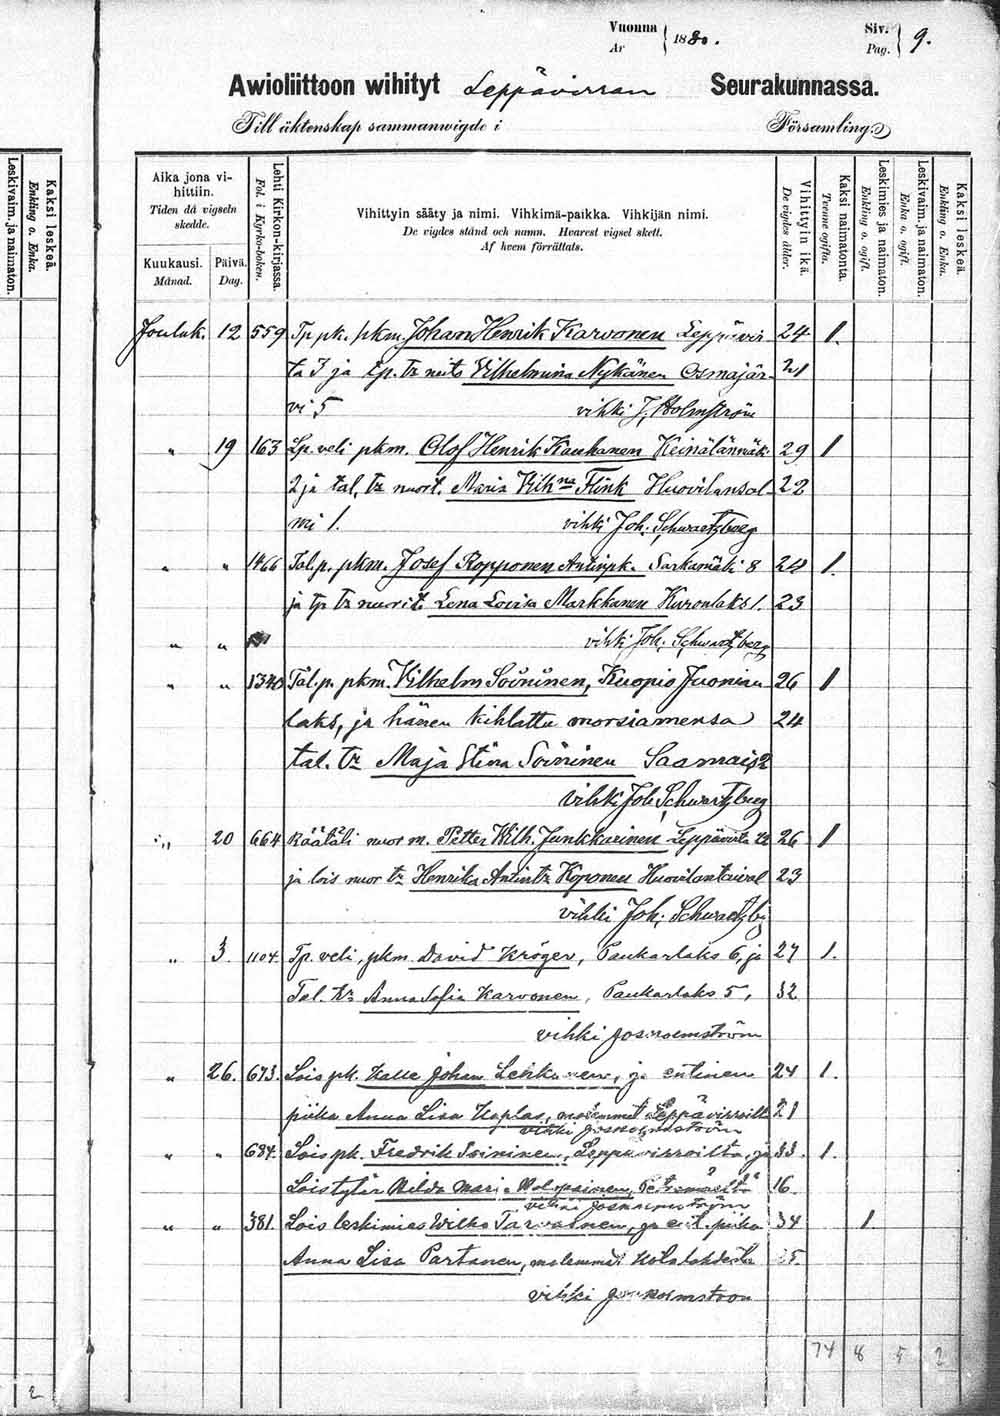 Vuonna
År
1880.
Siv.
Pag.
9.
Awioliittoon wihityt Leppävirran Seurakunnassa.
Till äktenskap sammanwigde i Församling:
Leskivaim. ja naimaton.
Kaksi leskeä.
Enkling o. Enka.
Aika jona vi-
hittiin.
Tiden då vigseln
skedde.
Kuukausi.
Månad.
Päivä.
Dag.
Lehti Kirkon-kirjassa.
Fol. i Kyrko-boken.
Vihittyin sääty ja nimi. Vihkimä-paikka. Vihkijän nimi.
De vigdes stånd och namn. Hvarest vigsel skett.
Af hvem förrättats.
Vihittyin ikä.
De vigdes ålder.
Kaksi naimatonta.
Tvenne ogifta.
Leskimies ja naimaton.
Enkling o. ogift.
Leskivaim. ja naimaton.
Enka o. ogift.
Kaksi leskeä.
Enkling o. Enka.
Jouluk. 12 559 Tp pk. pkm. Johan Henrik Karvonen Leppävir- 24 1.
ta 3 ja tp. tr neito Vilhelmina Nykänen Osmajär- 21
vi 5 vihki J. Holmström
" 19 163 Lp. veli pkm. Olof Henrik Kauhanen Keinälänmäki 29 1
2 ja tal. tr nuort. Maria Vilhna Flink Huovilansal- 22
mi 1. vihki Joh. Schwartzberg
" " 1466 Tal. p. pkm. Josef Ropponen Antinpk. Sarkamäki 8 24 1.
ja tp tr nuorit. Lena Lovisa Markkanen Kuronlaks 1. 23
" " vihki Joh. Schwartzberg
" " 1340 Tal. p. pkm. Vilhelm Soininen, Kuopio Juonian- 26 1
laks, ja hänen kihlattu morsiamensa 24
tal. tr Maja Stina Soininen Saamais 2
vihki Joh. Schwartzberg
" 20 664 Räätäli nuor m. Petter Wilh. Junkkarinen Leppävirta 26 1
ja lois nuor tr Henrika Antintr Koponen Huovilantaival 23
vihki Joh. Schwartzbg
" 3. 1104. Tp. veli, pkm. David Kröger, Paukarlaks 6, ja 27 1.
Tal. tr Anna Sofia Karvonen, Paukarlaks 5, 32
vihki Jos. Holmström
" 26. 673. Lois pk. Kalle Johan Leskinen, ja entinen 24 1.
piika Anna Lisa Kaplas, molemmat Leppävirroilta 21
vihki Jos. Holmström
" " 684. Lois pk. Fredrik Soininen, Leppävirroilta, ja 33. 1.
Loistytär Hilda Maria Holopainen, 16.
vihki Jos. Holmström
" " 381. Lois leskimies Wilho Tarvainen, ja ent. piika 34 1.
Anna Lisa Partanen, molemmat Kotalahdesta
vihki Jos. Holmström
74 8 5 2
2